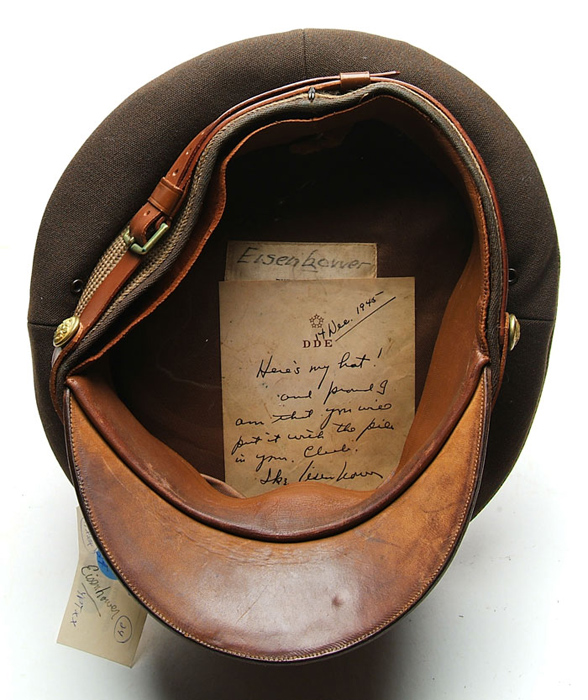 Eisenhower
14 Dec. 1945
DDE
Here's my hat!
and proud I
am that you will
put it with the pile
in your Club.
Ike Eisenhower
Eisenhower
24